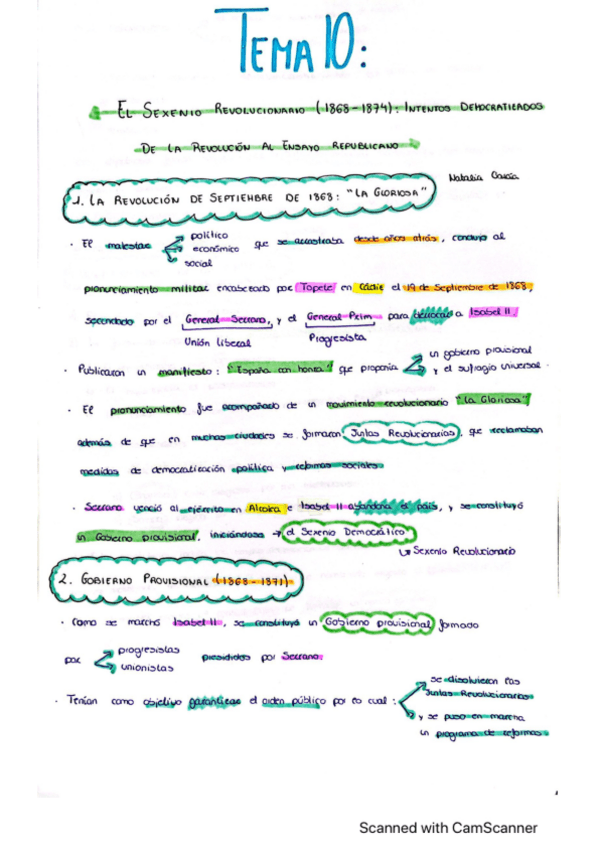 TEMA 10:
EL SEXENIO REVOLUCIONARIO (1868-1874): INTENTOS DEMOCRATIZADOS
DE LA REVOLUCIÓN AL ENSAYO REPUBLICANO
Natalia García
1. LA REVOLUCIÓN DE SEPTIEMBRE DE 1868: "LA GLORIOSA"
· El malestar político
económico que se arrastraba desde años atrás, condujo al
social
pronunciamiento militar encabezado por Topete en Cádiz el 19 de Septiembre de 1868,
secundado por el General Serrano, y el General Prim para derrocar a Isabel II.
Unión liberal Progresista
· Publicaron un manifiesto: "España con honra" que proponía un gobierno provisional
y el sufragio universal.
· El pronunciamiento fue acompañado de un movimiento revolucionario "La Gloriosa"
además de que en muchas ciudades se formaron Juntas Revolucionarias, que reclamaban
medidas de democratización política y reformas sociales
· Serrano venció al ejército en Alcolea e Isabel II abandona el país, y se constituyó
un Gobierno provisional, iniciándose → el Sexenio Democrático
↳ Sexenio Revolucionario
2. GOBIERNO PROVISIONAL (1868-1871)
· Como se marchó Isabel II, se constituyó un Gobierno provisional formado
por progresistas
unionistas presididos por Serrano.
· Tenían como objetivo garantizar el orden público por lo cual: se disolvieron las
Juntas Revolucionarias
y se puso en marcha
un programa de reformas
Scanned with CamScanner